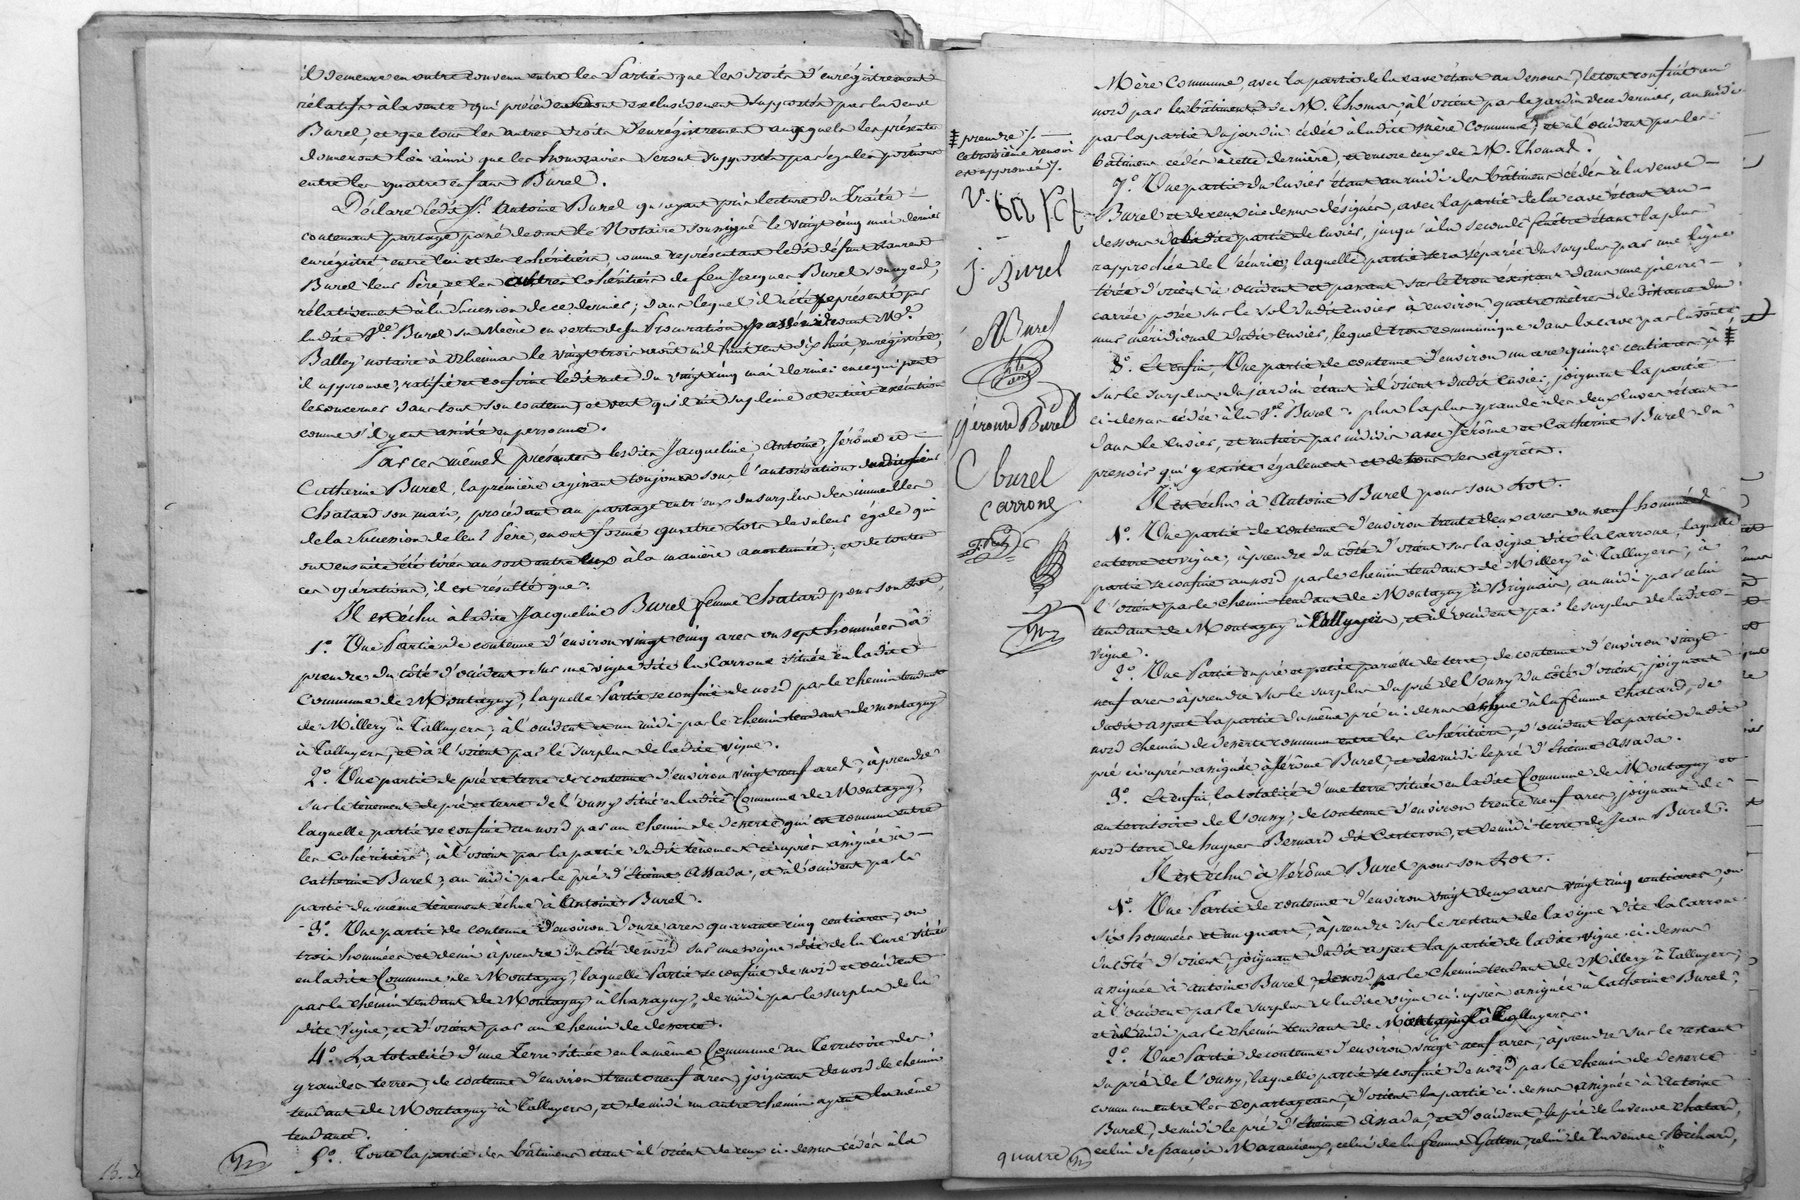 il demeure en outre convenu entre les Parties que les droits d'enrégistrement
rélatifs à la vente qui précède seront exclusivement supportés par la veuve
Burel, et que tous les autres droits d'enrégistrement auxquels les présentes
donneront lieu ainsi que les honoraires seront supportés par égales portions
entre les quatre enfans Burel.
Déclare ledit Sr. Antoine Burel qu'ayant pris lecture du Traité
contenant partage passé devant le Notaire soussigné le vingt cinq mai dernier
enrégistré, entre lui et ses cohéritiers, comme représentant ledit défunt Laurent
Burel leur Père et les autres cohéritiers de feu Jacques Burel
rélativement à la succession de ce dernier; dans lequel il a été représenté par
ladite Ve. Burel sa Mère en vertu de sa Procuration passée devant Me.
Balley notaire à le vingt trois août mil huit cent dix huit, enrégistrée,
il approuve, ratifie et confirme ledit acte du vingt cinq mai dernier en ce qui peut
le concerner dans tout son contenu, et veut qu'il ait sa pleine et entière exécution
comme s'il y eut assisté en personne.
Par ces mêmes présentes lesdits Jacqueline, Antoine, Jérôme et
Catherine Burel, la première agissant toujours sous l'autorisation dudit sieur
Chatard son mari, procédant au partage entr'eux du surplus des immeubles
de la succession de leur Père, en ont formé quatre lots de valeur égale qui
ont ensuite été tirés au sort entre eux à la manière accoutumée; et de toutes
ces opérations, il est résulté que.
Il est échu à ladite Jacqueline Burel femme Chatard pour son Lot,
1o. Une Partie de contenue d'environ vingt cinq ares ou sept hommées à
prendre du côté d'occident sur une vigne dite la Carrone située en ladite
Commune de Montagny, laquelle Partie se confine de nord par le chemin tendant
de Millery à Talluyers, à l'occident et au midi par le chemin tendant de Montagny
à Talluyers, et à l'orient par le surplus de ladite vigne.
2o. Une partie de pré et terre de contenue d'environ vingt neuf ares, à prendre
sur le tènement de pré et terre de l'ouny situé en ladite Commune de Montagny,
laquelle partie se confine au nord par un chemin de deserte qui est commun entre
les cohéritiers, à l'orient par la partie dudit tènement ci après assignée à
Catherine Burel, au midi par le pré d'Etienne Assada, et à l'occident par la
partie du même tènement échue à Antoine Burel.
3o. Une partie de contenue d'environ douze ares quarante cinq centiares, ou
trois hommées et demie à prendre du côté de nord sur une vigne dite de la Cure située
en ladite Commune de Montagny, laquelle Partie se confine de nord et occident
par le chemin tendant de Montagny à Chassagny, de midi par le surplus de la
dite vigne, et d'orient par un chemin de deserte.
4o. La totalité d'une Terre située en la même Commune au Territoire des
grandes terres, de contenue d'environ trente neuf ares, joignant de nord le chemin
tendant de Montagny à Talluyers, et de midi un autre chemin ayant la même
tendance.
5o. Toute la partie des bâtimens étant à l'orient de ceux ci-dessus cédés à la
Mère Commune, avec la partie de la cave étant au dessous, le tout confiné au
nord par les bâtimens de M. Thomas à l'orient par le jardin de ce dernier, au midi
par la partie du jardin cédée à ladite mère Commune, et à l'occident par les
bâtimens cédés à cette dernière, et encore ceux de M. Thomas.
7o. Une partie du cuvier étant au midi des bâtimens cédés à la veuve
Burel et de ceux ci-dessus désignés, avec la partie de la cave étant au
dessous de ladite partie de cuvier, jusqu'à la seconde fenêtre étant la plus
rapprochée de l'écurie, laquelle partie sera séparée du surplus par une ligne
tirée d'orient à occident et passant sur le trou existant dans une pierre
carrée posée sur le sol dudit cuvier à environ quatre mètres de distance du
mur méridional dudit cuvier, lequel trou communique dans la cave par la voûte,
8o. Et enfin, Une partie de contenue d'environ un are quinze centiares à
sur le surplus du jardin étant à l'orient dudit cuvier, joignant la partie
ci-dessus cédée à la Ve. Burel, plus la plus grande des deux cuves étant
dans le cuvier, et moitié par indivis avec Jérôme et Catherine Burel du
pressoir qui y existe également et de tous ses agrêts.
Il est échu à Antoine Burel pour son Lot.
1o. Une partie de contenue d'environ trente deux ares ou neuf hommées
en terre et vigne, à prendre du côté d'orient sur la vigne dite la Carrone, laquelle
partie se confine au nord par le chemin tendant de Millery à Talluyers, à
l'orient par le chemin tendant de Montagny à Brignais, au midi par celui
tendant de Montagny à Talluyers, et à l'occident par le surplus de ladite
vigne.
2o. Une Partie en pré et petite parcelle de terre, de contenue d'environ vingt
neuf ares à prendre sur le surplus du pré de l'ouny du côté d'orient joignant
dudit aspect la partie du même pré ci-dessus assignée à la femme Chatard, de
nord chemin de deserte commun entre les cohéritiers, d'occident la partie dudit
pré ci après assignée à Jérôme Burel, et de midi le pré d'Etienne Assada.
3o. Et enfin, la totalité d'une terre située en ladite Commune de Montagny et
au territoire de l'ouny, de contenue d'environ trente neuf ares, joignant de
nord terre de hugues Bernard dit Carteron, et de midi terre de Jean Burel.
Il est échu à Jérôme Burel pour son Lot.
1o. Une Partie de contenue d'environ vingt deux ares vingt cinq centiares, ou
six hommées et un quart, à prendre sur le restant de la vigne dite la Carrone
du côté d'orient, joignant dudit aspect la partie de ladite vigne ci-dessus
assignée à Antoine Burel, de nord par le chemin tendant de Millery à Talluyers,
à l'occident par le surplus de ladite vigne ci-après assignée à Catherine Burel,
et de midi par le chemin tendant de Montagny à Talluyers.
2o. Une Partie de contenue d'environ vingt neuf ares, à prendre sur le restant
du pré de l'ouny, laquelle partie se confine de nord par le chemin de deserte
commun entre les copartageans, d'orient la partie ci-dessus assignée à Antoine
Burel, de midi le pré d'Etienne Assada, et d'occident le pré de la veuve Chatard,
celui de françois Mazancieux, celui de la femme Gutton, celui de la veuve Bichard,
prendre /.
le troisième renvoi
est approuvé /.
J. Burel
A Burel
Jérome Burel
C burel
carrone
quatre